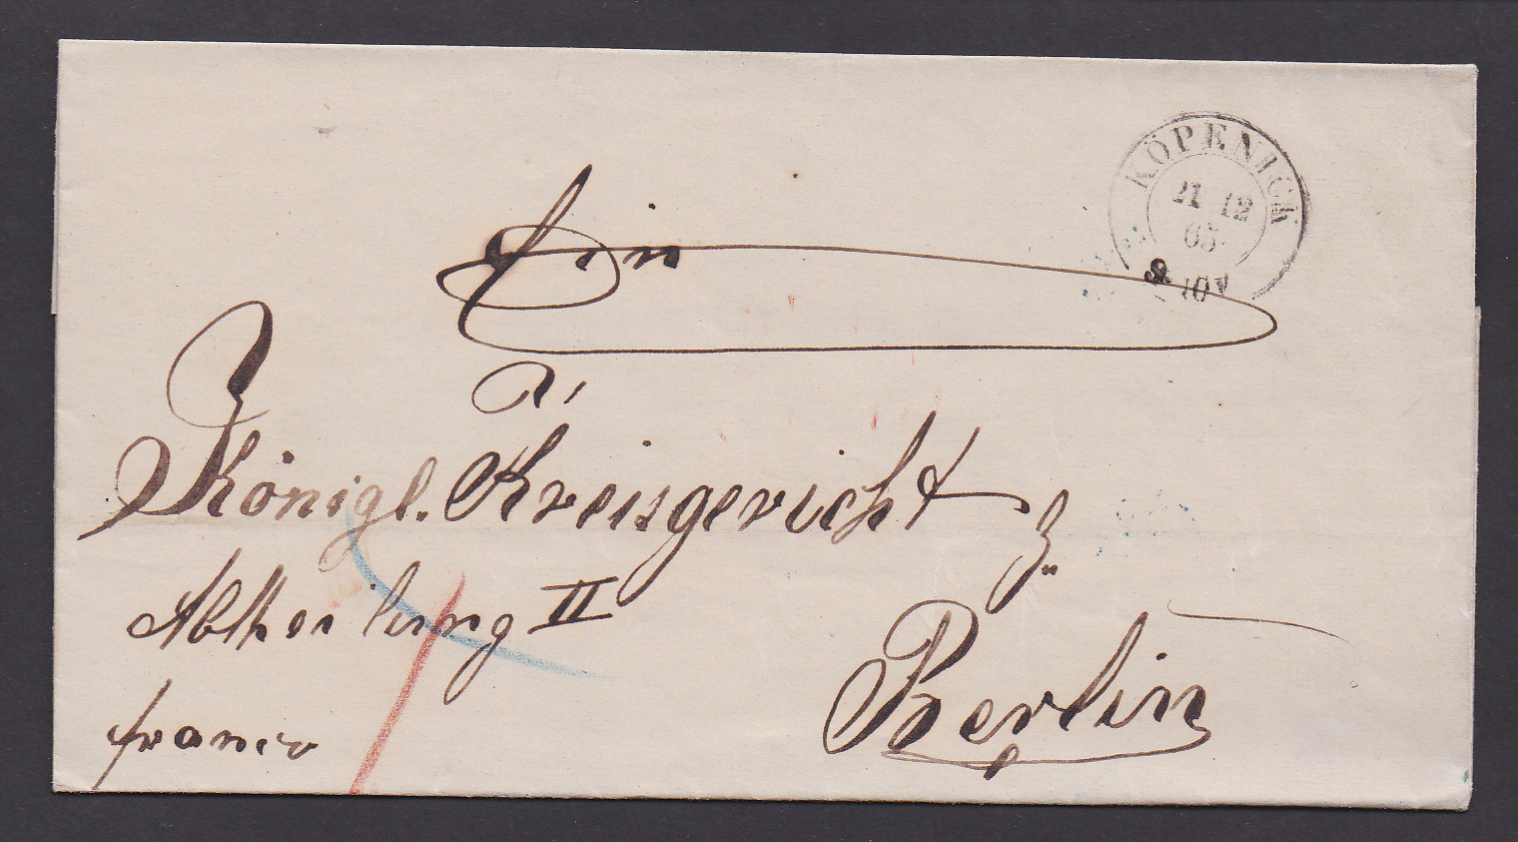 KÖPENICK
21 12
65
9 10V
Ein
Königl. Kreisgericht
z.
Abtheilung II
Berlin
franco